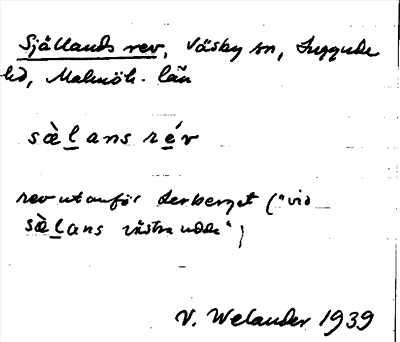 Själlands rev, Väsby sn, Luggude
hd, Malmöh. län
sæ̀lans rév
rev utanför Lerberget ("vid
sæ̀lans västra udde")
V. Welander 1939